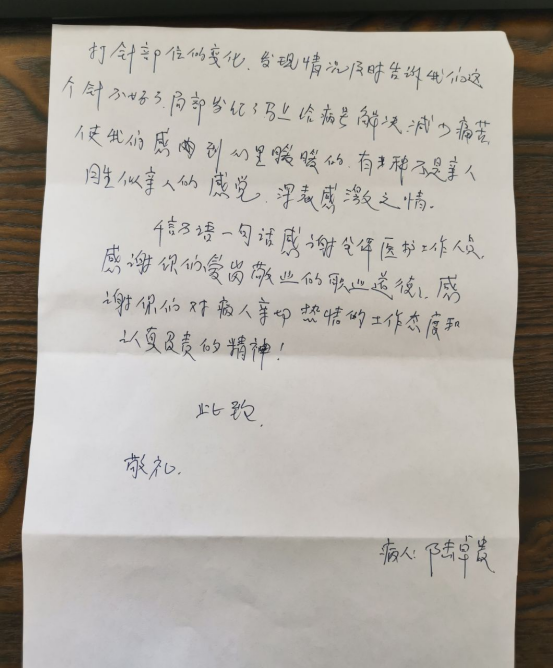 打针部位的变化,发现情况及时告诉我们这
个针不好了,局部发红了马上给病号解决,减少痛苦
使我们感切到心里暖暖的,有种不是亲人
胜似亲人的感觉,深表感激之情。
千言万语一句话感谢全体医护工作人员,
感谢你们爱岗敬业的职业道德,感
谢你们对病人亲切热情的工作态度和
认真负责的精神!
此致,
敬礼,
病人:陆卓贵